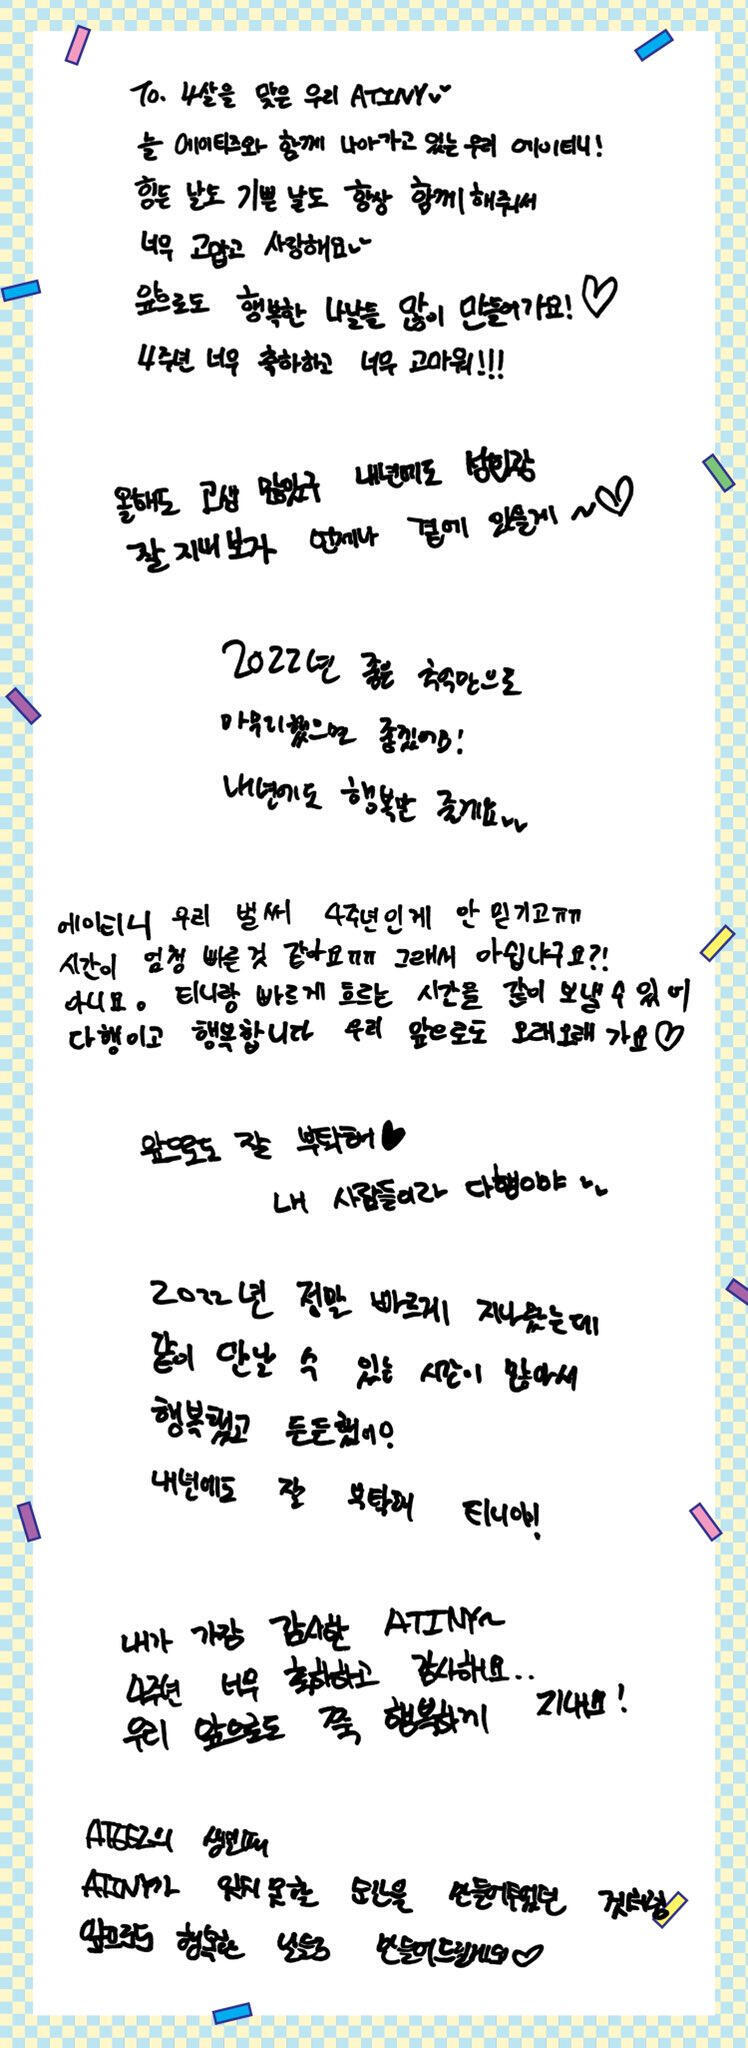 To. 4살을 맞은 우리 ATINY
늘 에이티즈와 함께 나아가고 있는 우리 에이티니!
힘든 날도 기쁜 날도 항상 함께 해줘서
너무 고맙고 사랑해요
앞으로도 행복한 나날들 많이 만들어가요!
4주년 너무 축하하고 너무 고마워!!!
올해도 고생 많았구 내년에도
잘 지내보자 언제나 곁에 있을게~
2022년 좋은 추억만으로
마무리했으면 좋겠어요!
내년에도 행복만 줄게요
에이티니 우리 벌써 4주년인게 안 믿기고ㅠㅠ
시간이 엄청 빠른 것 같아요ㅠㅠ 그래서 아쉽냐구요?!
아니요. 티니랑 빠르게 흐르는 시간을 같이 보낼 수 있어
다행이고 행복합니다 우리 앞으로도 오래오래 가요
앞으로도 잘 부탁해
내 사람들이라 다행이야
2022년 정말 빠르게 지나갔는데
같이 만날 수 있는 시간이 많아서
행복했고 든든했어!
내년에도 잘 부탁해 티니야!
내가 가장 감사한 ATINY~
4주년 너무 축하하고 감사해요..
우리 앞으로도 쭉 행복하게 지내요!
ATEEZ의 생일때
ATINY가 잊지 못할 순간을 만들어주었던 것처럼
앞으로도 행복한 날들 만들어드릴게요